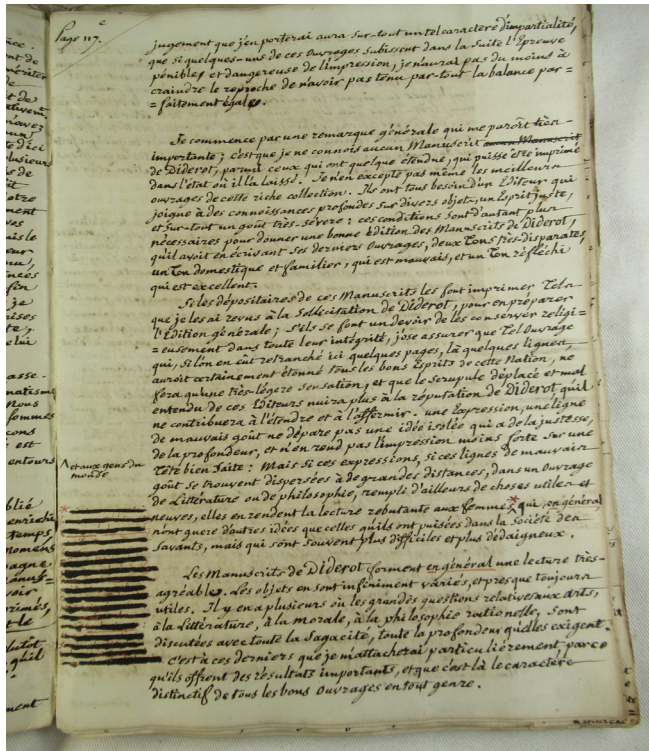 Page 117.e
jugement que j'en porterai aura sur-tout un tel caractère d'impartialité,
que si quelques-uns de ces Ouvrages subissent dans la suite l'Epreuve
pénible et dangereuse de l'impression, je n'aurai pas du moins à
craindre le reproche de n'avoir pas tenu par-tout la balance par=
=faitement égale.
Je commence par une remarque générale qui me paroît très-
importante; c'est que je ne connois aucun Manuscrit aucun Manuscrit
de Diderot, parmi ceux qui ont quelque étendue, qui puisse être imprimé
dans l'état où il l'a laissé. Je n'en excepte pas même les meilleurs
ouvrages de cette riche collection. Ils ont tous besoin d'un Editeur qui
joigne à des connoissances profondes sur divers objets, un Esprit juste,
et sur-tout un goût très-sévere: ces conditions sont d'autant plus
nécessaires pour donner une bonne édition des Manuscrits de Diderot,
qu'il avoit en écrivant ses derniers Ouvrages, deux Tons très-disparates,
un Ton domestique et familier, qui est mauvais, et un Ton réfléchi
qui est excellent.
Si les dépositaires de ces Manuscrits les font imprimer Tels
que je les ai revus à la Sollicitation de Diderot, pour en préparer
l'Edition générale; s'ils se font un devoir de les conserver religi=
=eusement dans toute leur intégrité, j'ose assurer que Tel Ouvrage
qui, si l'on en eût retranché ici quelques pages, là quelques lignes,
auroit certainement étonné tous les bons Esprits de cette Nation, ne
fera qu'une très-légere sensation, et que le scrupule déplacé et mal
entendu de ces Editeurs nuira plus à la réputation de Diderot qu'il
ne contribuera à l'étendre et à l'affermir. une Expression, une ligne
de mauvais goût ne dépare pas une idée isolée qui a de la justesse,
de la profondeur, et n'en rend pas l'impression moins forte sur une
Tête bien faite: Mais si ces expressions, si ces lignes de mauvais
goût se trouvent dispersées à de grandes distances, dans un Ouvrage
de Littérature ou de philosophie, rempli d'ailleurs de choses utiles et
neuves, elles en rendent la lecture rebutante aux femmes, qui, en général
n'ont guere d'autres idées que celles qu'ils ont puisées dans la Société des
Savants, mais qui sont souvent plus difficiles et plus dédaigneux.
et aux gens du
monde
Les Manuscrits de Diderot forment en général une lecture très-
agréable. Les objets en sont infiniment variés, et presque toujours
utiles. Il y en a plusieurs où les grandes questions relatives aux arts,
à la Littérature, à la morale, à la philosophie rationelle, sont
discutées avec toute la Sagacité, toute la profondeur qu'elles exigent.
C'est à ces derniers que je m'attacherai particulièrement, parce
qu'ils offrent des résultats importants, et que c'est là le caractère
distinctif de tous les bons Ouvrages en tout genre.